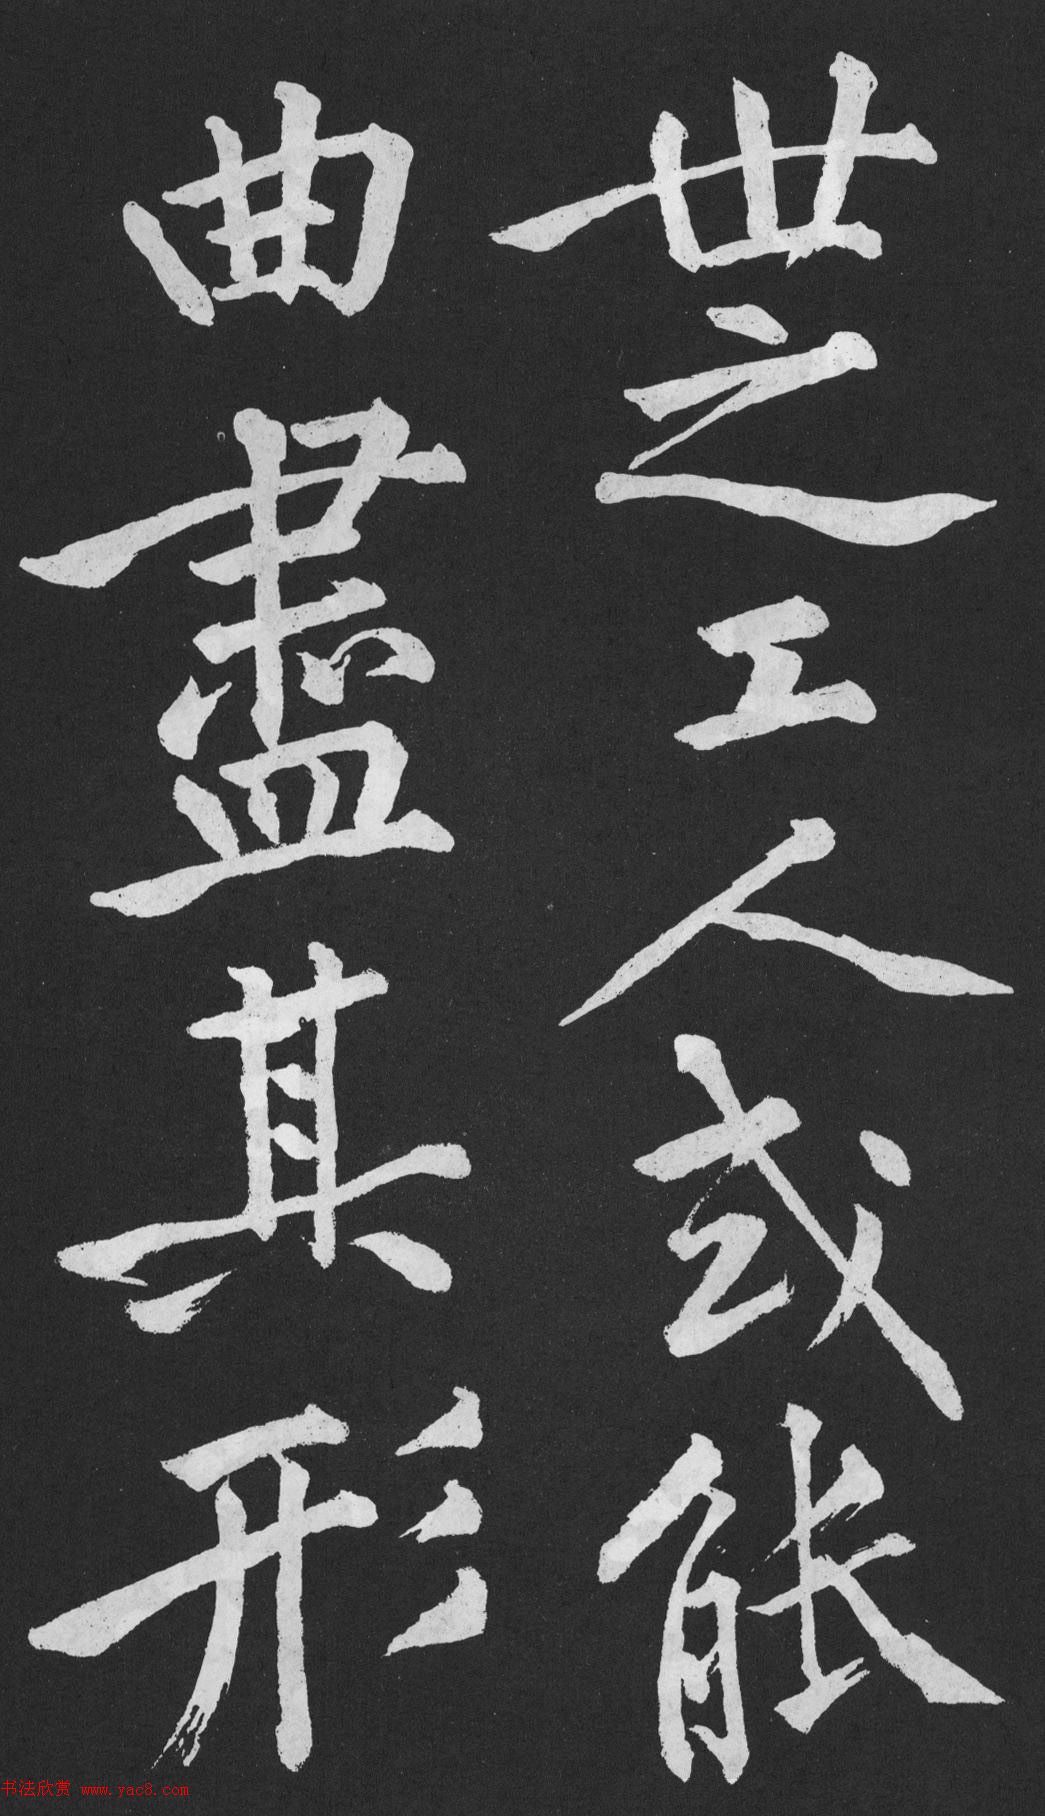 世之工人或能
曲盡其形
书法欣赏 www.yac8.com